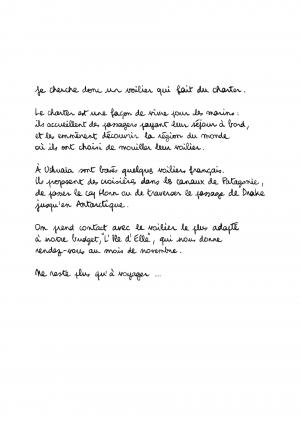 Je cherche donc un voilier qui fait du charter.
Le charter est une façon de vivre pour les marins :
ils accueillent des passagers payant leur séjour à bord,
et les emmènent découvrir la région du monde
où ils ont choisi de mouiller leur voilier.
À Ushuaia sont basés quelques voiliers français.
Ils proposent des croisières dans les canaux de Patagonie,
de passer le cap Horn ou de traverser le passage de Drake
jusqu'en Antarctique.
On prend contact avec le voilier le plus adapté
à notre budget, "L'Île d'Elle", qui nous donne
rendez-vous au mois de novembre.
Ne reste plus qu'à voyager ...